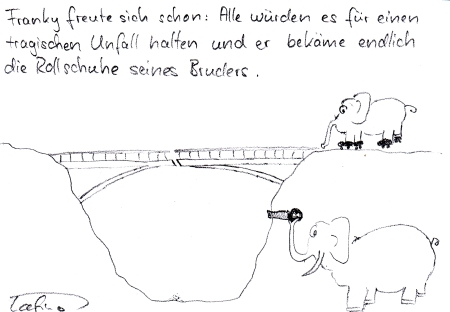 Franky freute sich schon: Alle würden es für einen
tragischen Unfall halten und er bekäme endlich
die Rollschuhe seines Bruders.